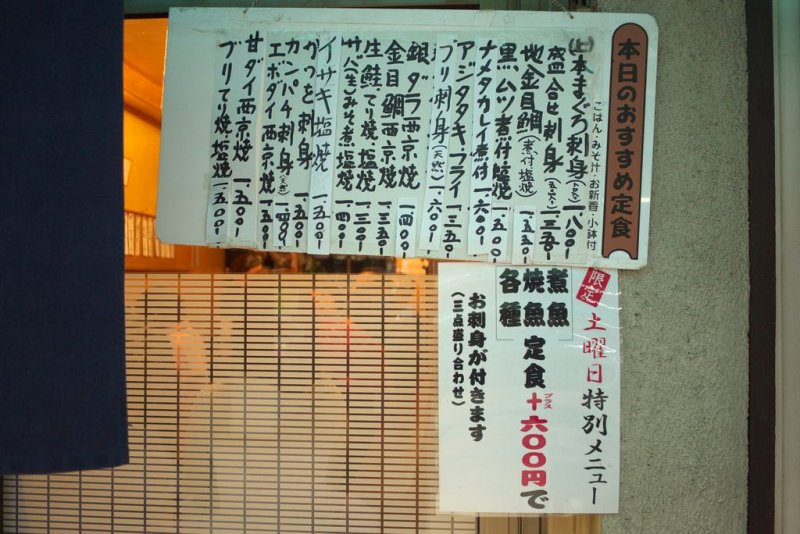 本日のおすすめ定食
ごはん・みそ汁・お新香・小鉢付
(上)本まぐろ刺身 一.八〇〇
盛合せ刺身 一.三五〇
地金目鯛(煮付塩焼) 一.五五〇
黒ムツ煮付塩焼 一.五〇〇
ナメタカレイ煮付 一.六〇〇
アジタタキ、フライ 一.三五〇
ブリ刺身(天然) 一.六〇〇
銀ダラ西京焼 一.四〇〇
金目鯛西京焼 一.三五〇
生鮭てり焼、塩焼 一.三〇〇
サバ(生)みそ煮、塩焼 一.四〇〇
イサキ塩焼 一.五〇〇
かつを刺身 一.五〇〇
カンパチ刺身(天然) 一.四〇〇
エボダイ西京焼 一.五〇〇
甘ダイ西京焼 一.五〇〇
ブリてり焼、塩焼 一.五〇〇
限定
土曜日特別メニュー
煮魚
焼魚定食+プラス六〇〇円で
各種
お刺身が付きます
(三点盛り合わせ)